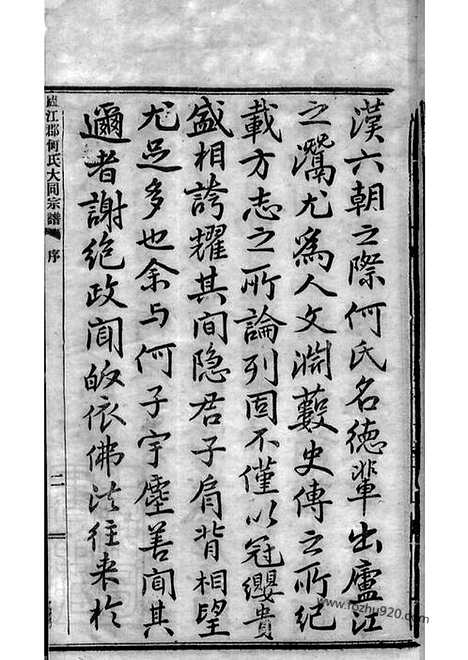 漢六朝之際何氏名德輩出廬江
之灊尤為人文淵藪史傳之所紀
載方志之所論列固不僅以冠纓貴
盛相誇耀其间隐君子肩背相望
尤足多也余与何子宇塵善闻其
邇者謝绝政闻皈依佛法往来於
廬江郡何氏大同宗譜
序
二
www.fozhu920.com